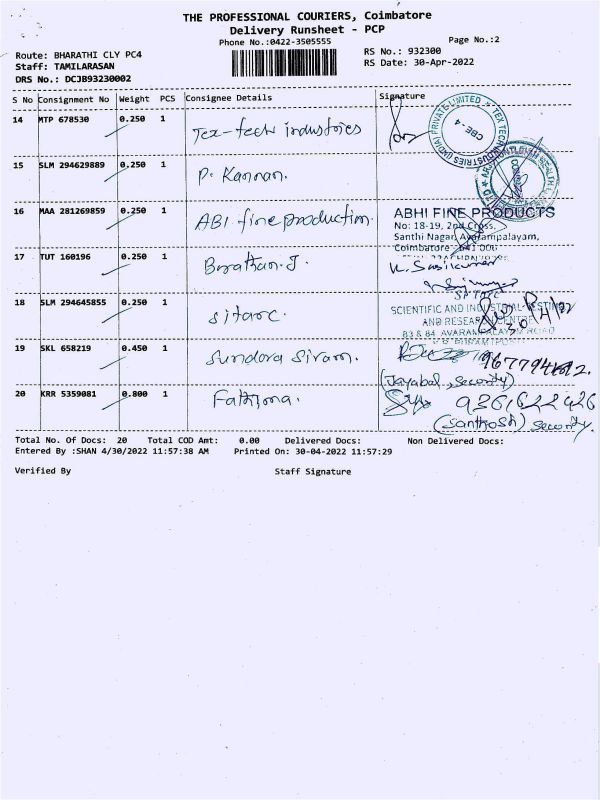 THE PROFESSIONAL COURIERS, Coimbatore
Delivery Runsheet - PCP
Phone No.:0422-3505555
Page No.:2
Route: BHARATHI CLY PC4
RS No.: 932300
Staff: TAMILARASAN
RS Date: 30-Apr-2022
DRS No.: DCJB93230002
S No Consignment No Weight PCS Consignee Details Signature
14 MTP 678530 0.250 1 Tex-tech industries
TEX TECH INDUSTRIES (INDIA) PRIVATE LIMITED
CBE-4
15 SLM 294629889 0.250 1 P. Kannan.
16 MAA 281269859 0.250 1 ABI fine production.
ABHI FINE PRODUCTS
No: 18-19, 2nd Cross,
Santhi Nagar, Avarampalayam,
Coimbatore - 641 006
17 TUT 160196 0.250 1 Barathan.J
K. Sasikumar
18 SLM 294645855 0.250 1 sitarc.
SITARC
SCIENTIFIC AND INDUSTRIAL TESTING
AND RESEARCH CENTRE
83 & 84 AVARAMPALAYAM ROAD
19 SKL 658219 0.450 1 Sundara Sivam.
(Jayabal, Security)
20 KRR 5359081 0.800 1 Fathima.
9361622426
(Santhosh) Security.
Total No. Of Docs: 20 Total COD Amt: 0.00 Delivered Docs: Non Delivered Docs:
Entered By :SHAN 4/30/2022 11:57:38 AM Printed On: 30-04-2022 11:57:29
Verified By Staff Signature